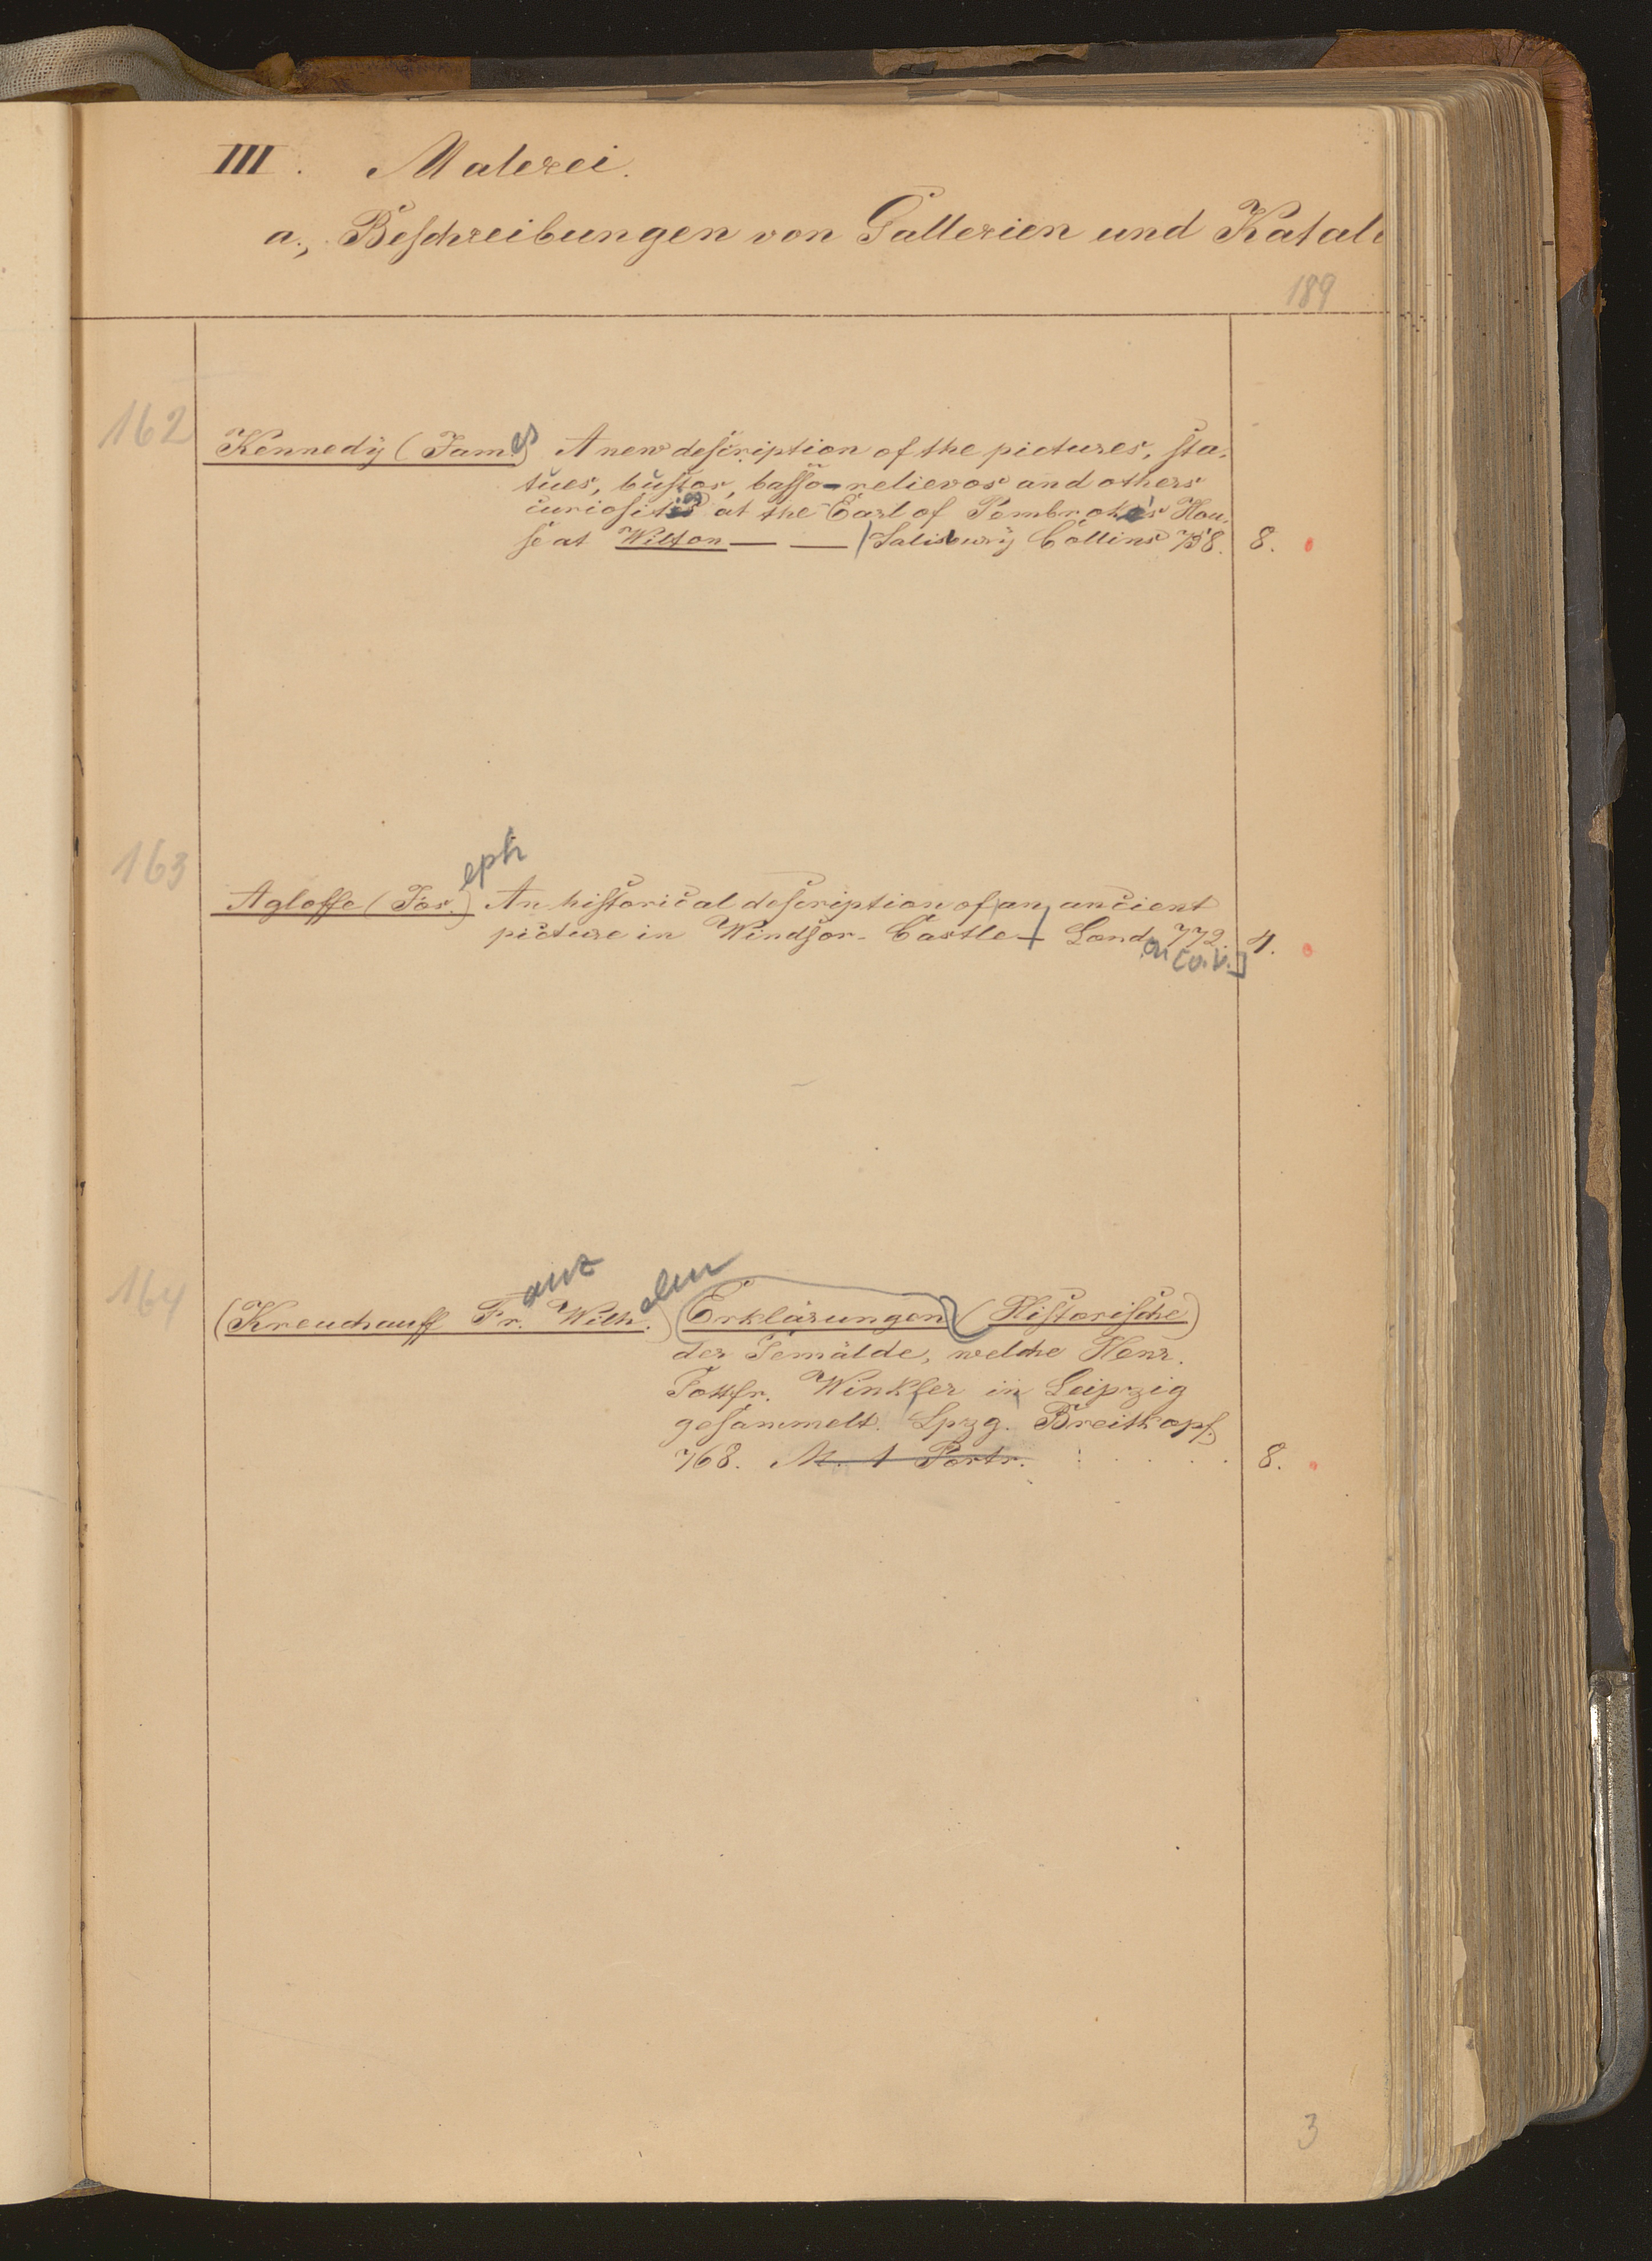 III. Malerei.
a., Beschreibungen von Gallerien und Katal
189
162
Kennedy (James) A new description of the pictures, sta-
tues, bustos, basso-relievos and others
curiosities at the Earl of Pembroke's Hou-
se at Wilton — — / Salisbury Collins 758. 8.
163
eph
Agloffe (Jos.) An historical description of an ancient
picture in Windsor-Castle Lond. 772. 4.
on
164
anz elm
(Kreuchauff Fr. Wilh.) Erklärungen (Historische)
der Gemälde, welche Herr.
Gottfr. Winkler in Leipzig
gesammelt. Lpzg. Breitkopf.
768. M. 1 Portr. 8.
3